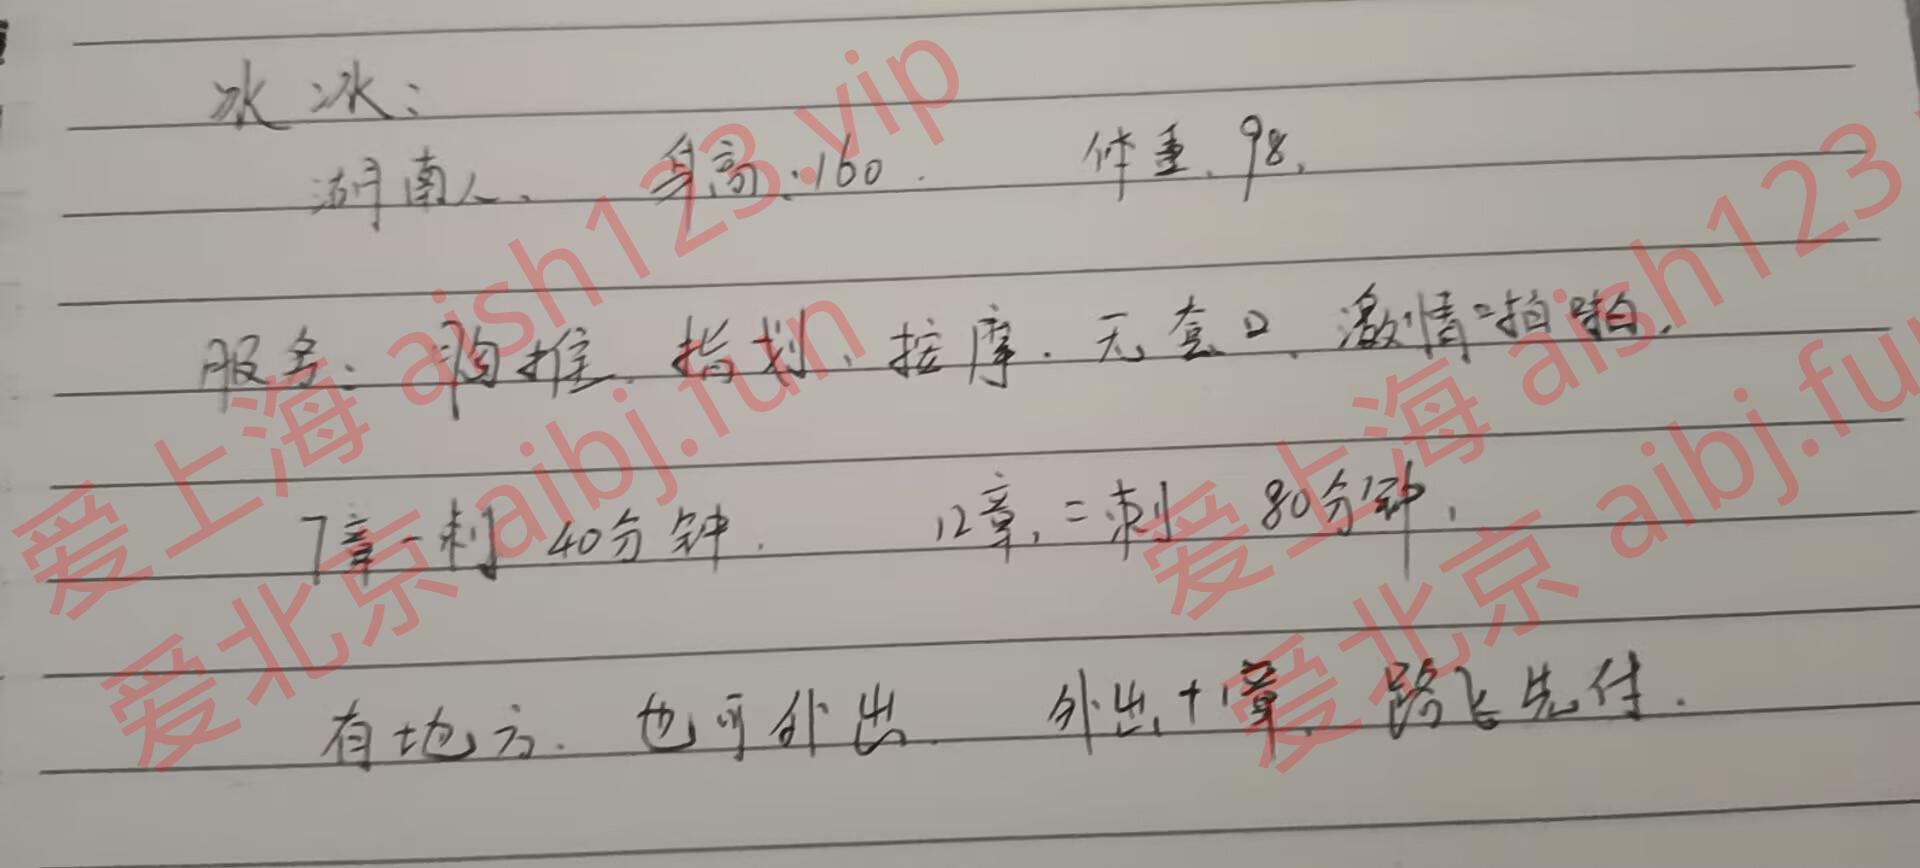 冰冰:
湖南人、 身高:160. 体重.98.
服务: 胸推、指划、按摩.无套口、激情啪啪.
7章一刺 40分钟. 12章,二刺 80分钟.
有地方. 也可外出. 外出,+1章. 路飞先付.
爱上海 aish123.vip
爱北京 aibj.fun
爱上海 aish123
爱北京 aibj.fu